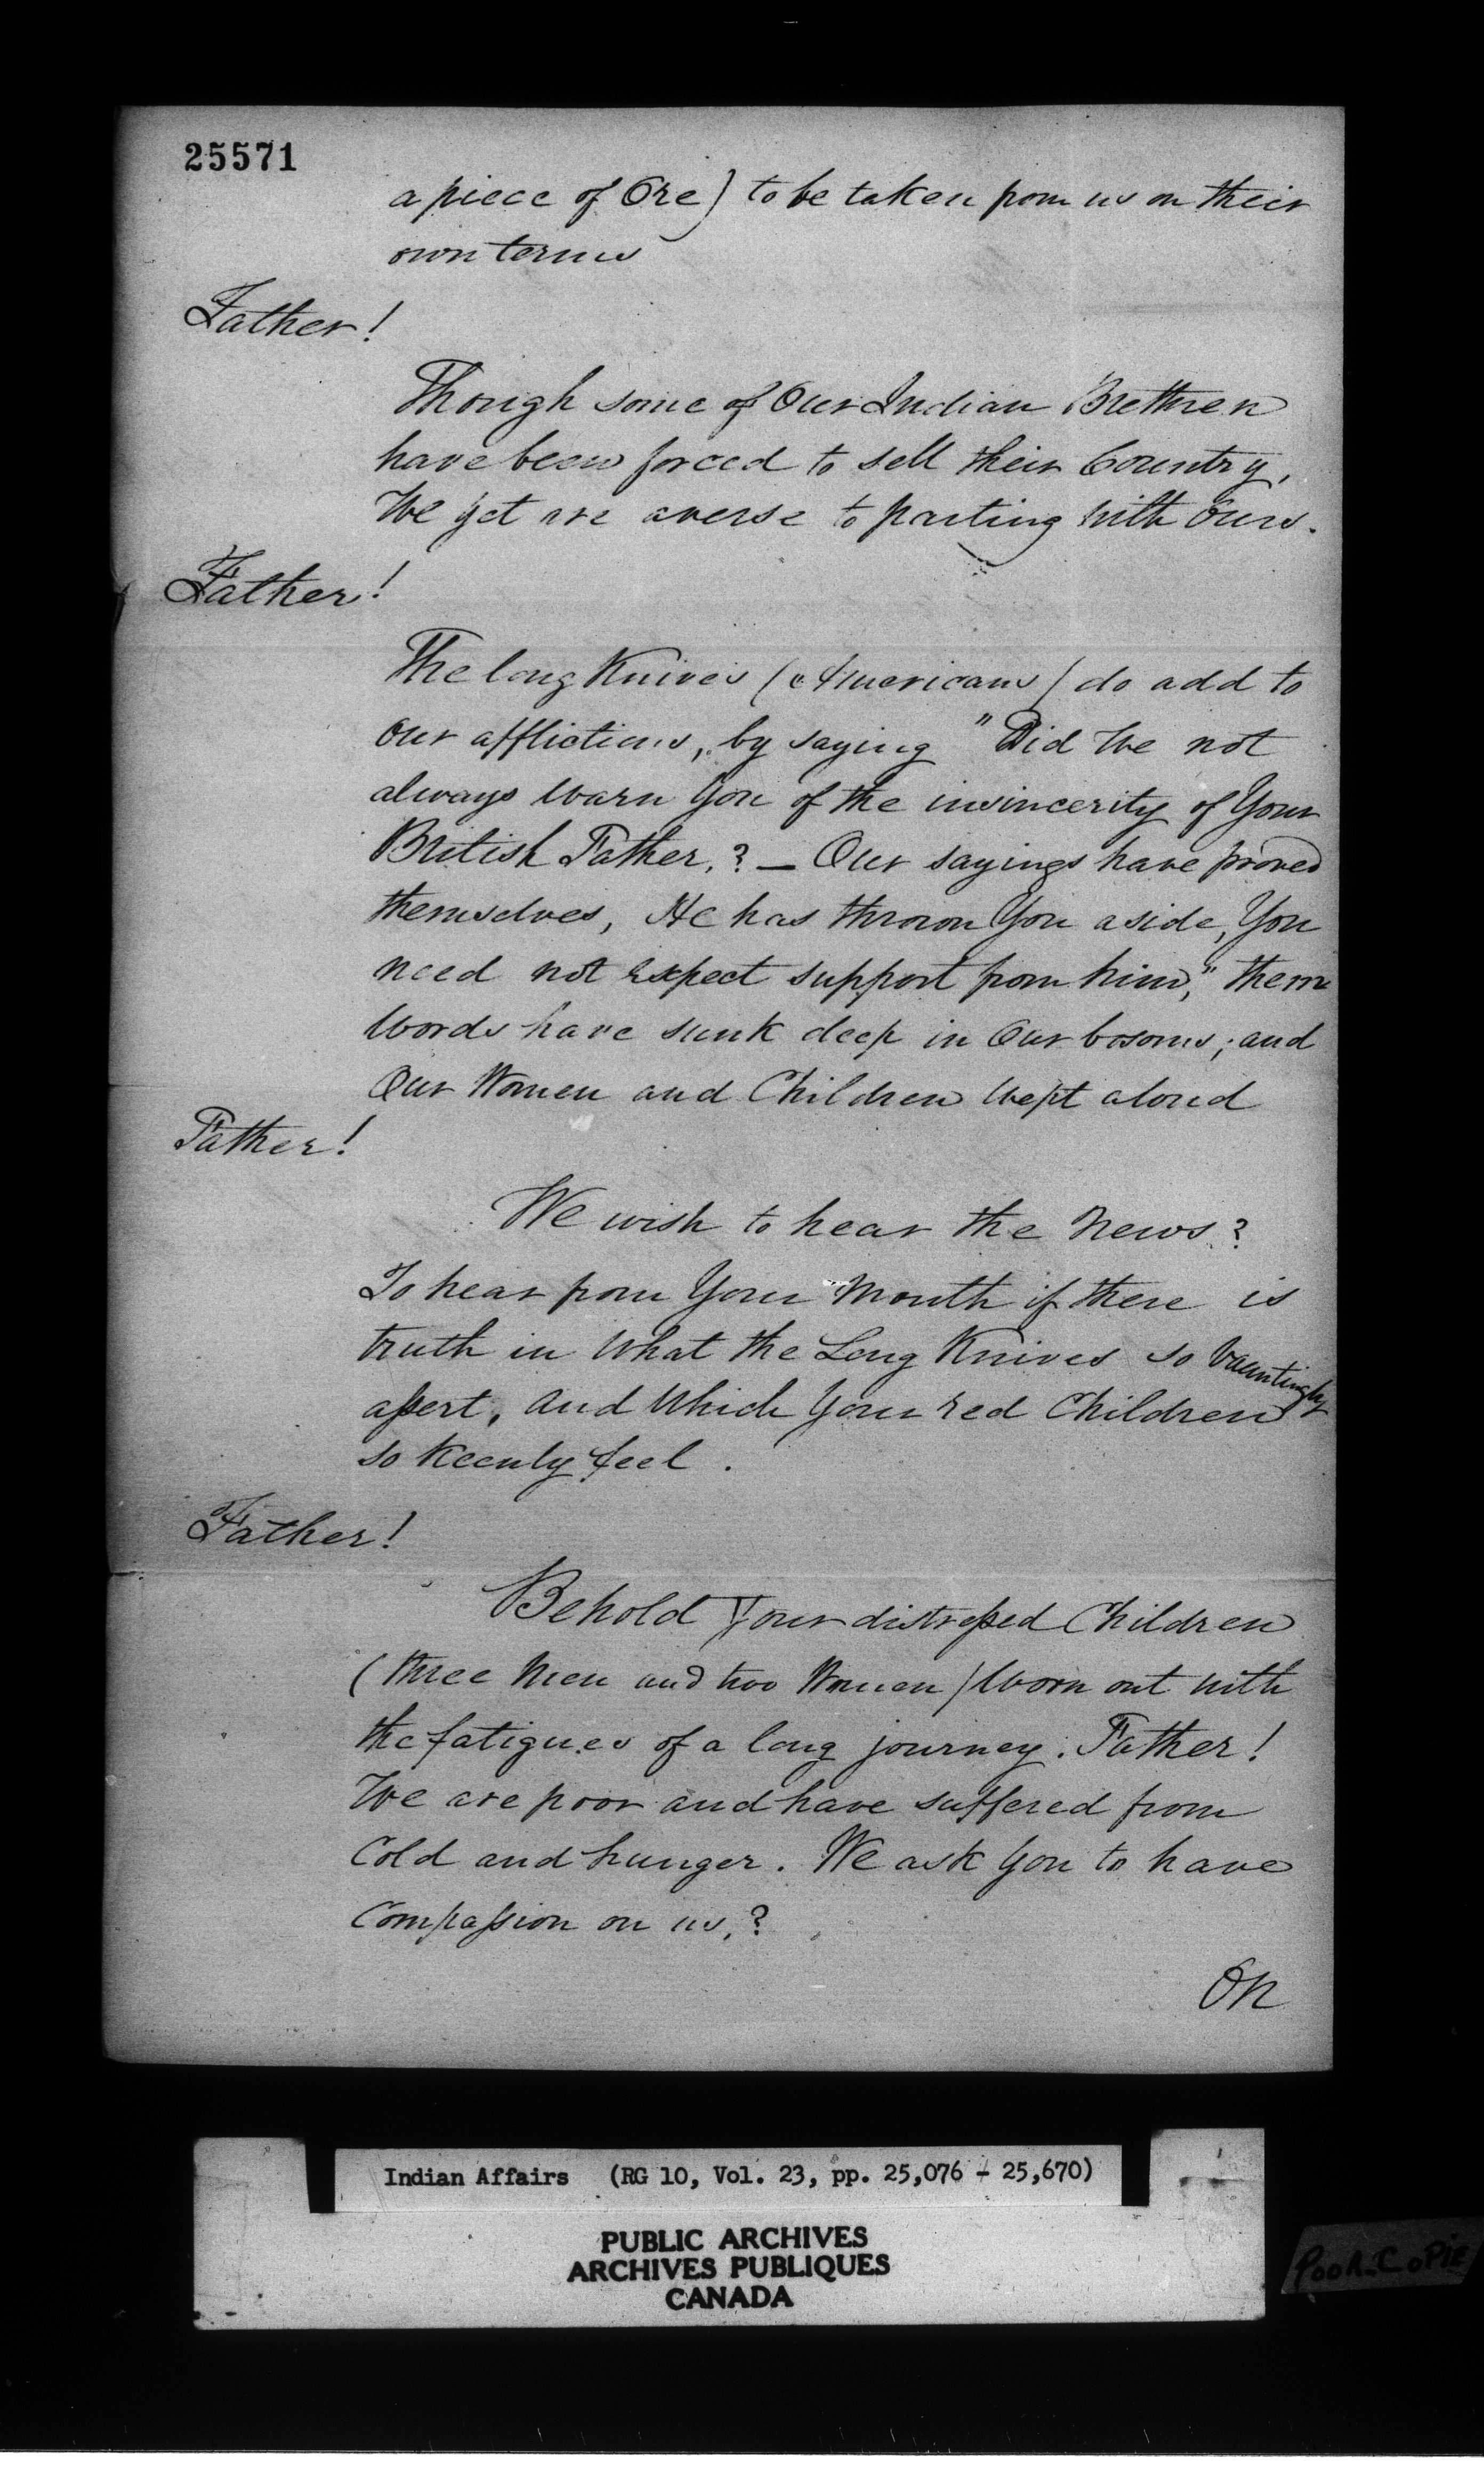 25571
a piece of Ore) to be taken from us on their
own terms
Father!
Though some of Our Indian Brethren
have been forced to sell their Country,
We yet are averse to parting with Ours.
Father!
The long Knives (Americans) do add to
our afflictions, by saying "Did We not
always Warn You of the insincerity of Your
British Father,? — Our sayings have proved
themselves, He has thrown You aside, You
need not expect support from him," them
Words have sunk deep in Our bosoms; and
Our Women and Children Wept aloud
Father!
We wish to hear the News?
To hear from Your Mouth if there is
truth in What the Long Knives so Vauntingly
assert, and Which Your red Children
so keenly feel.
Father!
Behold Your distressed Children
(three Men and two Women) Worn out with
the fatigues of a long journey. Father!
We are poor and have suffered from
Cold and hunger. We ask You to have
Compassion on us,?
On
Indian Affairs (RG 10, Vol. 23, pp. 25,076 - 25,670)
PUBLIC ARCHIVES
ARCHIVES PUBLIQUES
CANADA
POOR COPIE